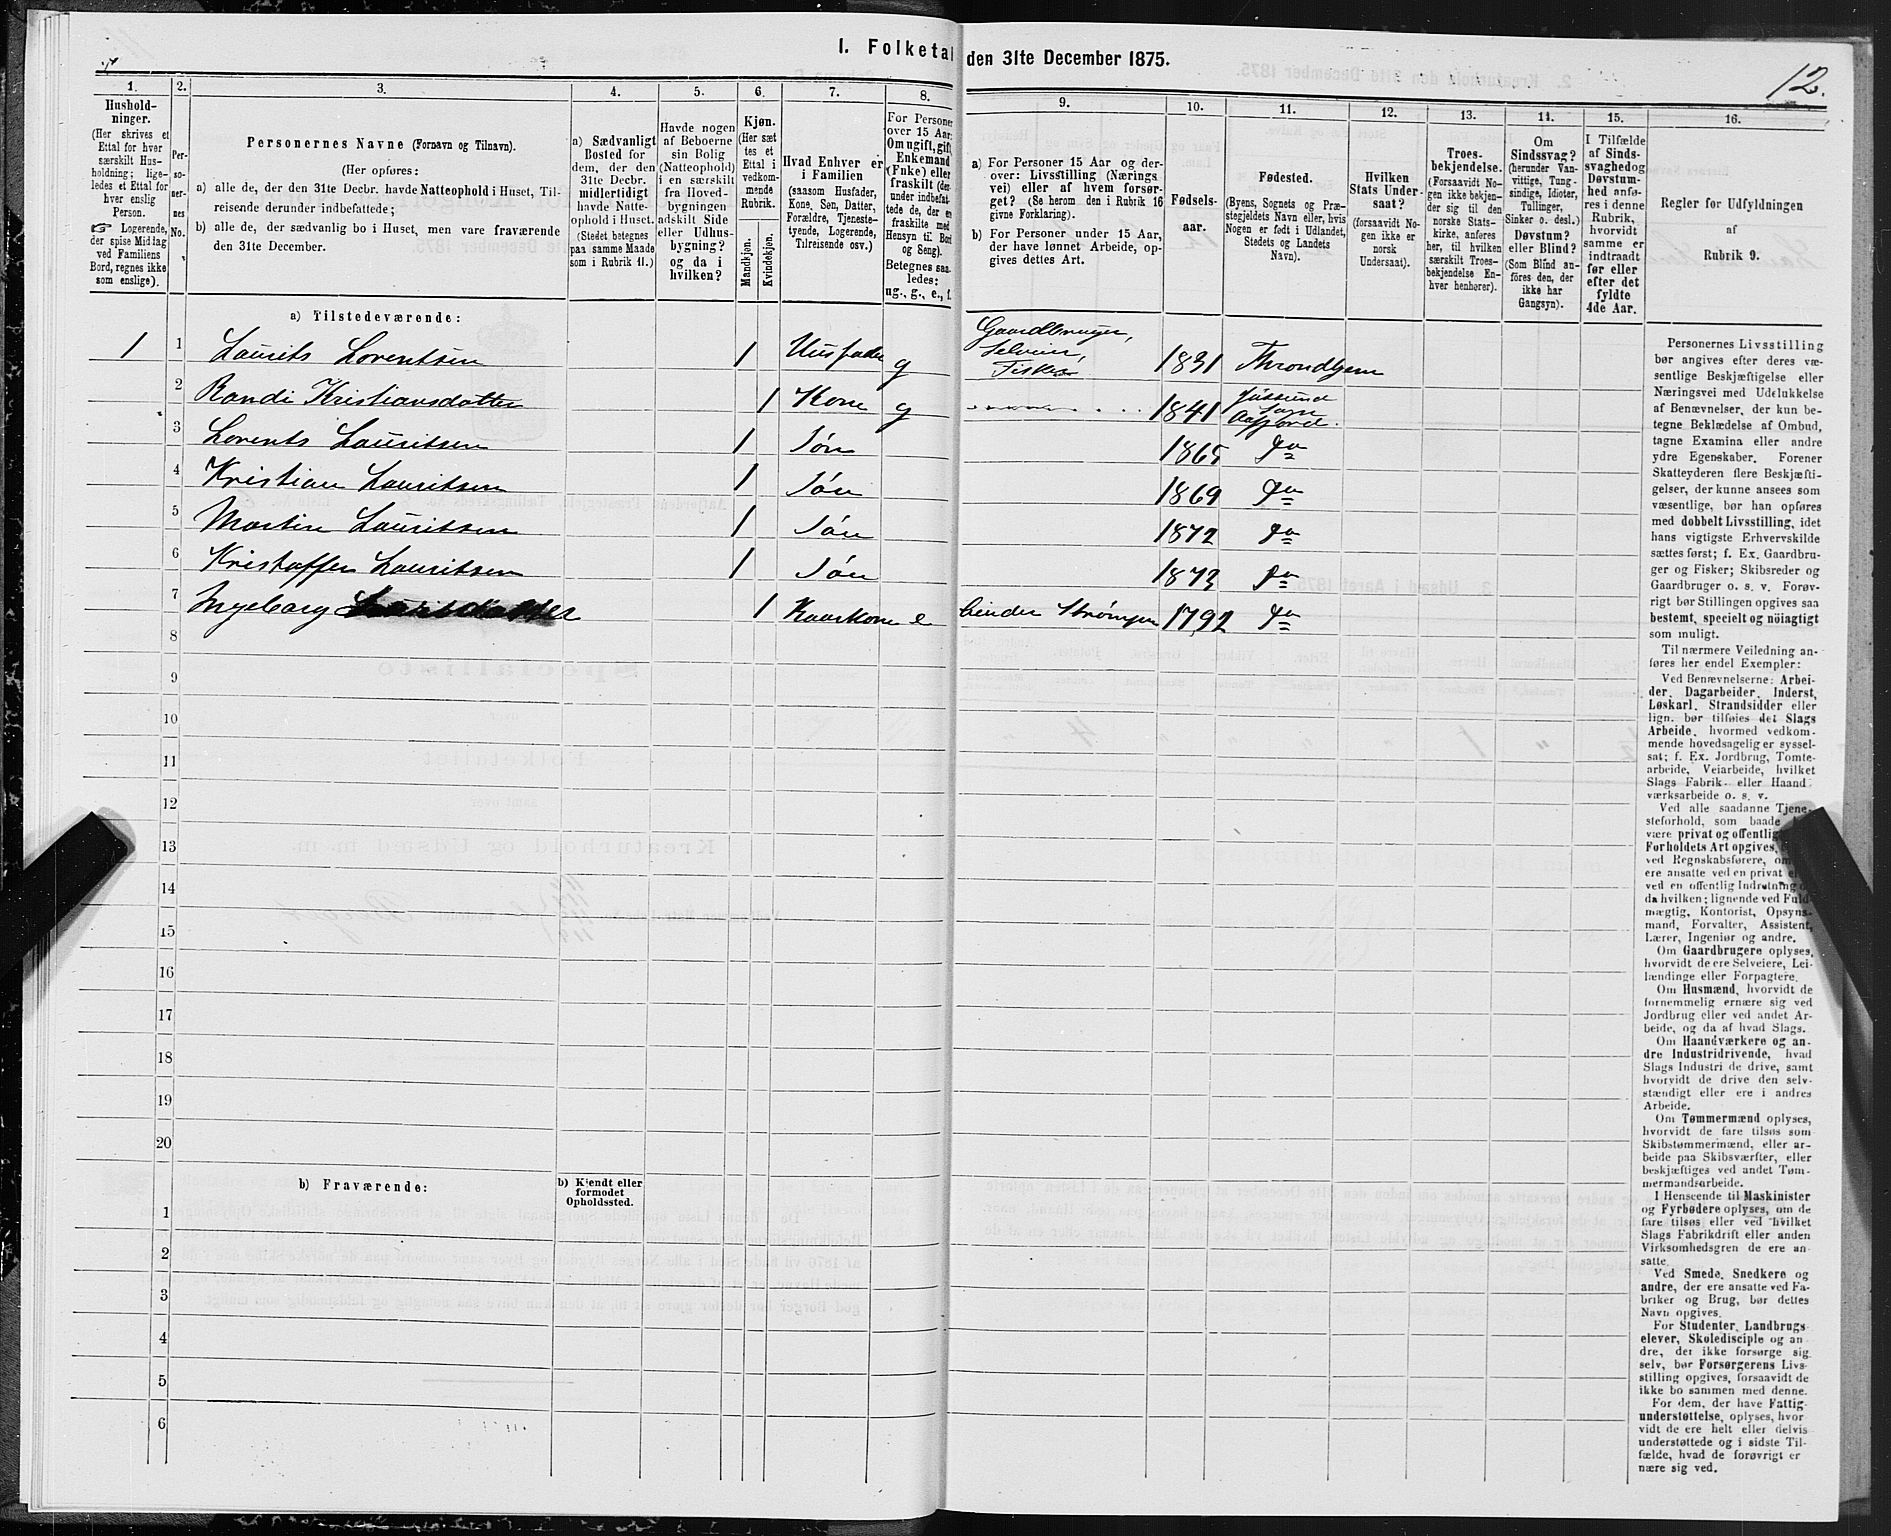 I. Folketal den 31te December 1875.
12.
1.
Hushold-
ninger.
(Her skrives et
Ettal for hver
særskilt Hus-
holdning; lige-
ledes et Ettal for
hver enslig
Person.
☞ Logerende,
der spise Middag
ved Familiens
Bord, regnes ikke
som enslige).
2.
Per-
so-
ner-
nes
No.
3.
Personernes Navne (Fornavn og Tilnavn).
(Her opføres:
a) alle de, der den 31te Decbr. havde Natteophold i Huset, Til-
reisende derunder indbefattede;
b) alle de, der sædvanlig bo i Huset, men vare fraværende
den 31te December.
4.
a) Sædvanligt
Bosted for
dem, der den
31te Decbr.
midlertidigt
havde Natte-
ophold i Huset.
(Stedet betegnes
paa samme Maade
som i Rubrik 11.)
5.
Havde nogen
af Beboerne
sin Bolig
(Natteophold)
i en særskilt
fra Hoved-
bygningen
adskilt Side
eller Udhus-
bygning?
og da i
hvilken?
6.
Kjøn.
(Her sæt
tes et
Ettal i
vedkom-
mende
Rubrik.
Mandkjøn.
Kvindekjøn.
7.
Hvad Enhver er
i Familien
(saasom Husfader,
Kone, Søn, Datter,
Forældre, Tjeneste-
tyende, Logerende,
Tilreisende osv.)
8.
For Personer
over 15 Aar:
Om ugift, gift,
Enkemand
(Enke) eller
fraskilt (der-
under indbefat-
tede de, der en
fraskilte med
Hensyn til Bord
og Seng).
Betegnes saa-
ledes:
ug., g., e., f.
9.
a) For Personer 15 Aar og der-
over: Livsstilling (Nærings
vei) eller af hvem forsør-
get? (Se herom den i Rubrik 16
givne Forklaring).
b) For Personer under 15 Aar,
der have lønnet Arbeide, op-
gives dettes Art.
10.
Fødsels-
aar.
11.
Fødested.
(Byens, Sognets og Præ-
stegjeldets Navn eller, hvis
Nogen er født i Udlandet,
Stedets og Landets
Navn).
12.
Hvilken
Stats Under-
saat?
(forsaavidt No-
gen ikke er
norsk
Undersaat).
13.
Troes-
bekjendelse.
(Forsaavidt No-
gen ikke bekjen-
der sig til den
norske Stats-
kirke, anføres
her, til hvilken
særskilt Troes-
bekjendelse En-
hver henhører).
14.
Om
Sindssvag?
(herunder Van-
vittige, Tung-
sindige, Idioter,
Tullinger,
Sinker o. desl.)
Døvstum?
eller Blind?
(Som Blind an-
føres den, der
ikke har
Gangsyn).
15.
I Tilfælde
af Sinds-
svaghed og
Døvstum-
hed anfø-
res i denne
Rubrik,
hvorvidt
samme er
indtraadt
før eller
efter det
fyldte
4de Aar.
16.
Regler for Udfyldningen
af
Rubrik 9.
a) Tilstedeværende:
1 1 Laurits Lorentsen 1 Husfader g Gaardbruger, Selveier, Fisker 1831 Throndhjem
2 Randi Kristiansdatter 1 Kone g 1841 Jøssund Sogn Aafjord.
3 Lorents Lauritsen 1 Søn 1865 Do
4 Kristian Lauritsen 1 Søn 1869 Do
5 Martin Lauritsen 1 Søn 1872 Do
6 Kristoffer Lauritsen 1 Søn 1873 Do
7 Ingeborg 1 Kaarkone e binder Strømper 1792 Do
8
9
10
11
12
13
14
15
16
17
18
19
20
b) Fraværende:
b) Kjendt eller
formodet
Opholdssted.
1
2
3
4
5
6
Personernes Livsstilling
bør angives efter deres væ-
sentlige Beskjæftigelse eller
Næringsvei med Udelukkelse
af Benævnelser, der kun be-
tegne Beklædelse af Ombud,
tagne Examina eller andre
ydre Egenskaber. Forener
Skatteyderen flere Beskjæfti-
gelser, der kunne ansees som
væsentlige, bør han opføres
med dobbelt Livsstilling, idet
hans vigtigste Erhvervskilde
sættes først; f. Ex. Gaardbru-
ger og Fisker; Skibsreder og
Gaardbruger o. s. v. Forøv-
rigt bør Stillingen opgives saa
bestemt, specielt og nøiagtigt
som muligt.
Til nærmere Veiledning an-
føres her endel Exempler:
Ved Benævnelserne: Arbei-
der, Dagarbeider, Inderst,
Løskarl, Strandsidder eller
lign. bør tilføies det Slags
Arbeide, hvormed vedkom-
mende hovedsagelig er syssel-
sat; f. Ex. Jordbrug, Tomte-
arbeide, Veiarbeide, hvilket
Slags Fabrik- eller Haand
værksarbeide o. s. v.
Ved alle saadanne Tjene-
steforhold, som baade
være privat og offentlig
Forholdets Art opgives,
ved Regnskabsførere, om
ere ansatte ved en privat
ved en offentlig Indretning
da hvilken; lignende ved Fuld-
mægtig, Kontorist, Opsyns-
mand, Forvalter, Assistent,
Lærer, Ingeniør og andre.
Om Gaardbrugere oplyses,
hvorvidt de ere Selveiere, Lei-
lændinge eller Forpagtere.
Om Husmænd, hvorvidt de
fornemmelig ernære sig ved
Jordbrug eller ved andet Ar-
beide, og da af hvad Slags.
Om Haandværkere og an-
dre Industridrivende, hvad
Slags Industri de drive, samt
hvorvidt de drive den selv-
stændigt eller ere i andres
Arbeide.
Om Tømmermænd oplyses,
hvorvidt de fare tilsøs som
Skibstømmermænd, eller ar-
beide paa Skibsværfter, eller
beskjæftiges ved andet Tøm-
mermandsarbeide.
I Henseende til Maskinister
og Fyrbødere oplyses, om de
fare tilsøs eller ved hvilket
Slags Fabrikdrift eller anden
Virksomhedsgren de ere an-
satte.
Ved Smede, Snedkere og
andre, der ere ansatte ved Fa-
briker og Brug, bør dettes
Navn opgives.
For Studenter, Landbrugs-
elever, Skoledisciple og an
dre, der ikke forsørge sig
selv, bør Forsørgerens Livs-
stilling opgives, forsaavidt de
ikke bo sammen med denne.
For dem, der have Fattig-
understøttelse, oplyses, hvor
vidt de ere helt eller delvis
understøttede og i sidste Til-
fælde, hvad de forøvrigt er
nære sig ved.